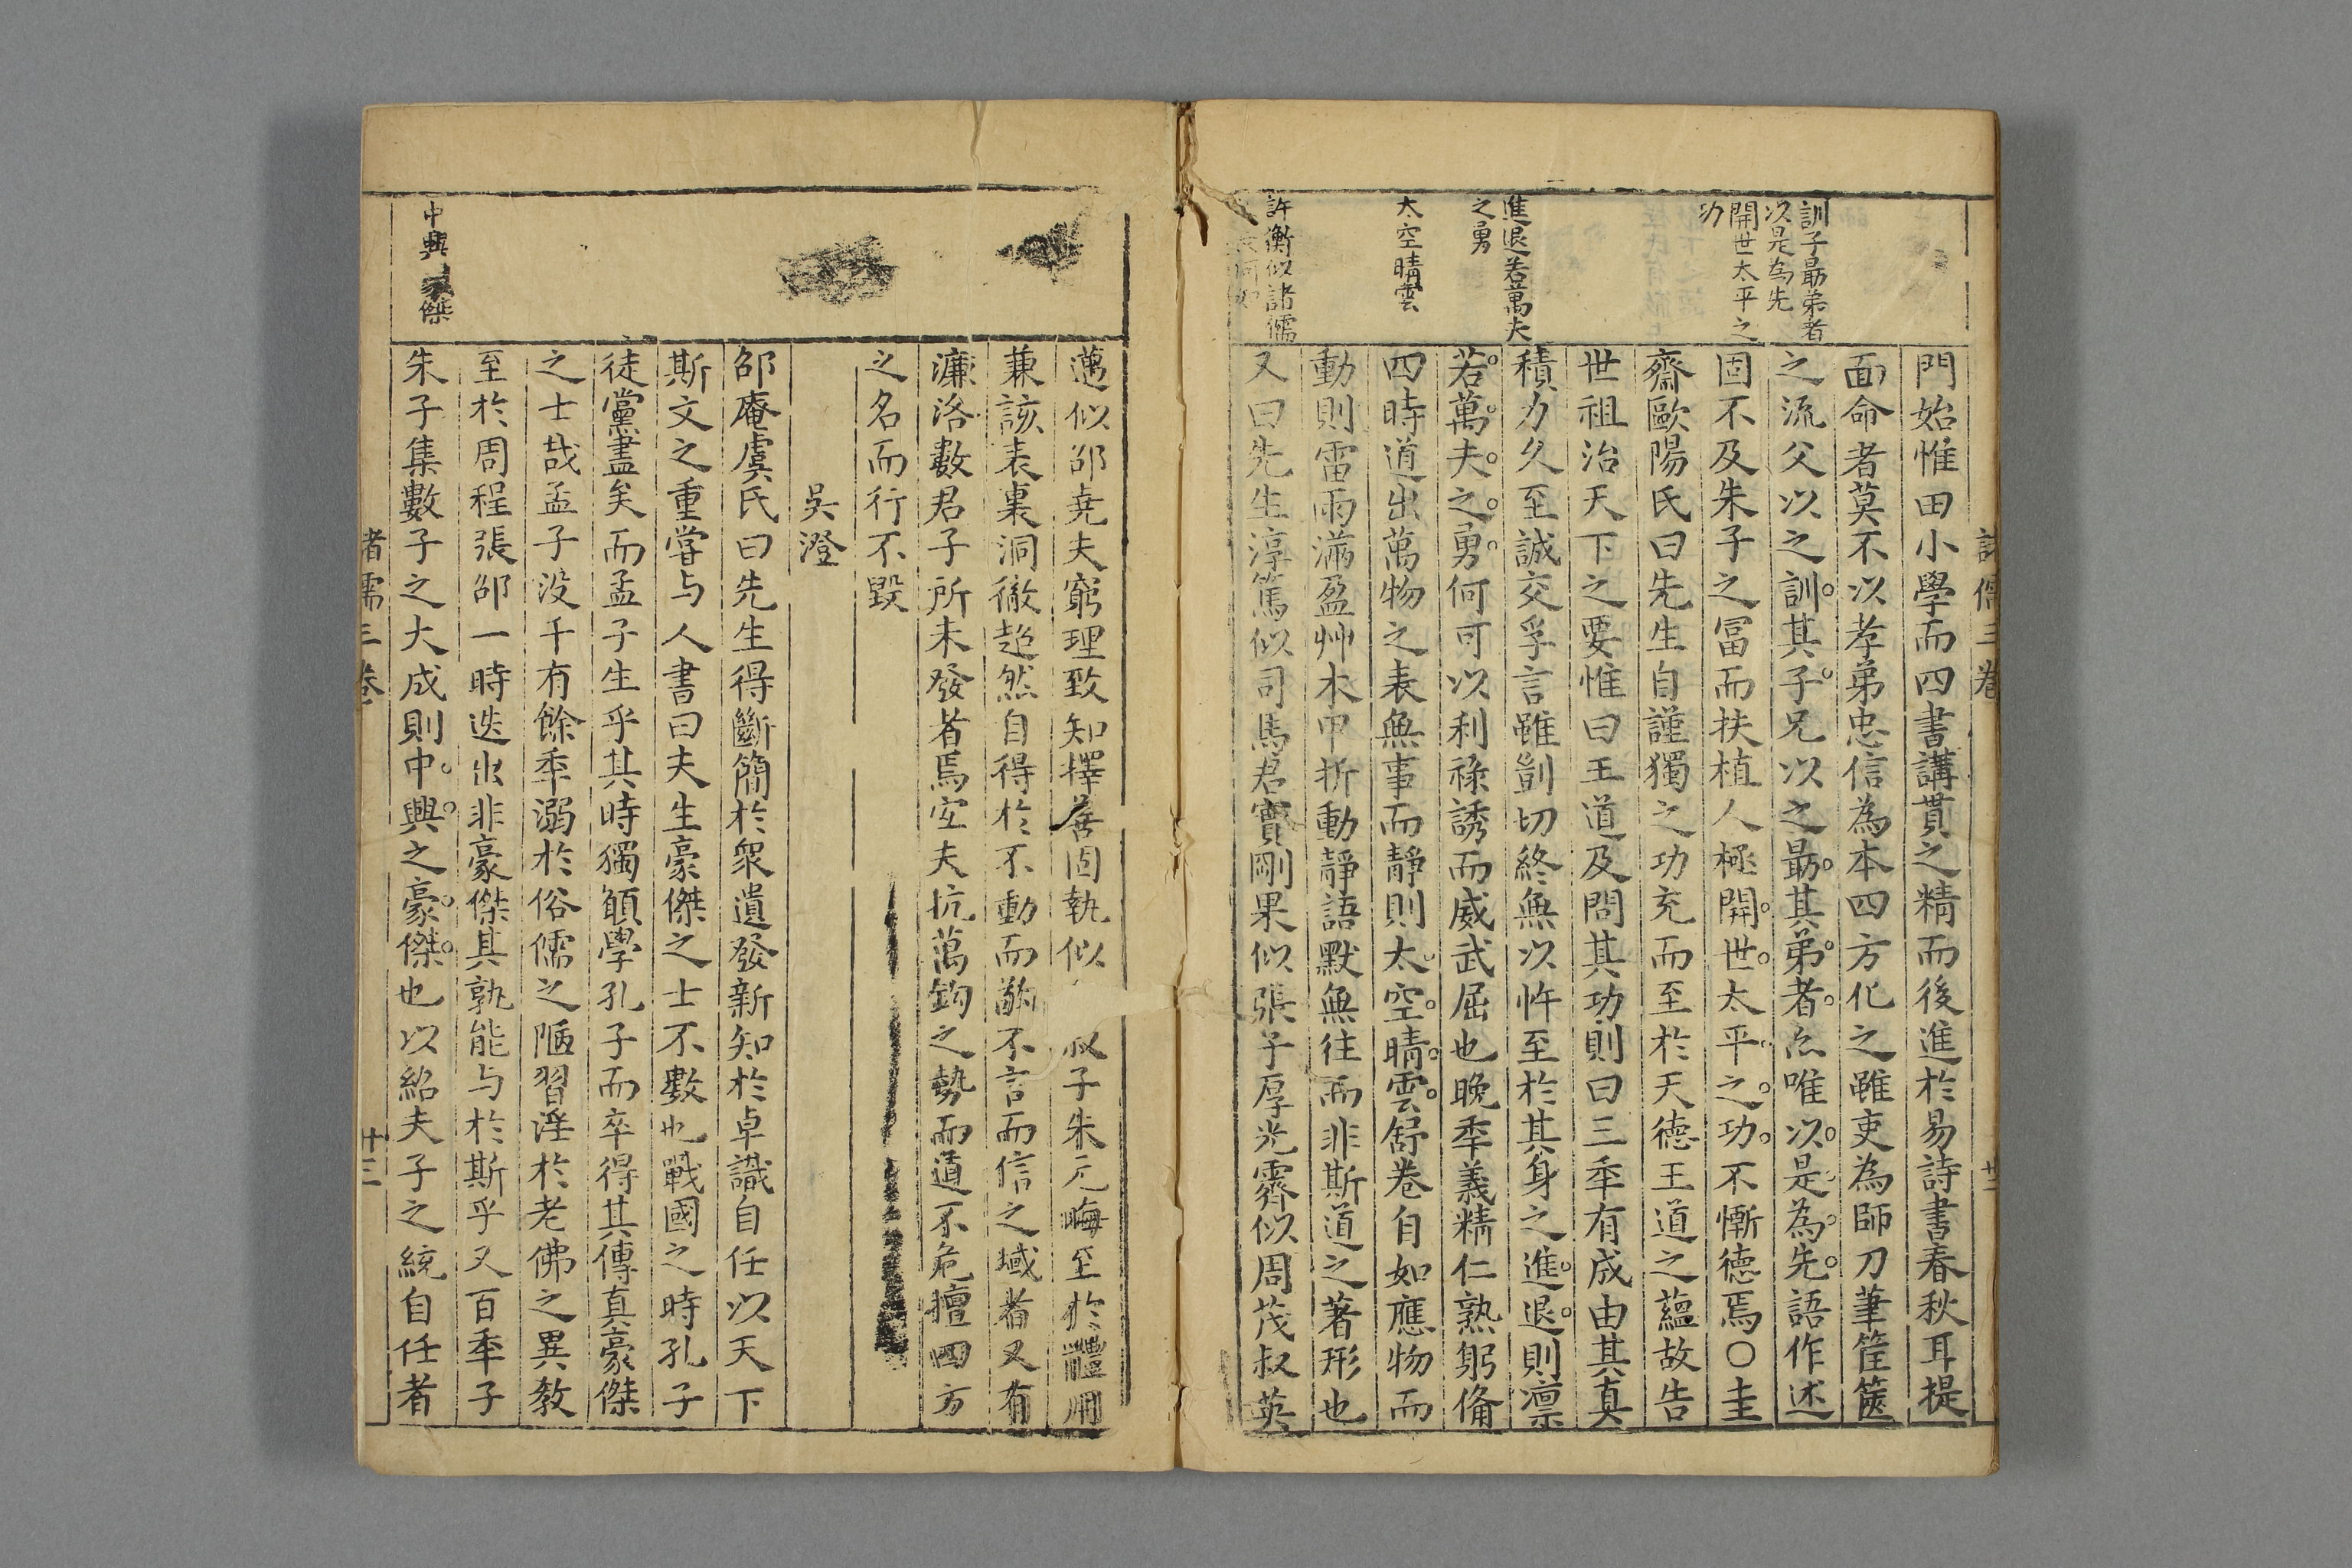 諸儒三卷
廿二
訓子最弟者
以是為先
開世太平之
功
進退若萬夫
之勇
太空晴雲
許衡似諸儒
門始惟田小學而四書講貫之精而後進於易詩書春秋耳提
面命者莫不以孝弟忠信為本四方化之雖吏為師刀筆筐篋
之流父以之訓其子兄以之最其弟者亦唯以是為先語作述
固不及朱子之冨而扶植人極開世太平之功不慚徳焉○圭
齋歐陽氏曰先生自謹獨之功充而至於天徳王道之蘊故告
世祖治天下之要惟曰王道及問其功則曰三秊有成由其真
積力久至誠交孚言雖剴切終無以忤至於其身之進退則凛
若萬夫之勇何可以利祿誘而威武屈也晩秊義精仁熟躬俻
四時道出萬物之表無事而靜則太空晴雲舒卷自如應物而
動則雷雨滿盈艸木甲拆動靜語默無往而非斯道之著形也
又曰先生淳篤似司馬君實剛果似張子厚光霽似周茂叔英
中興豪傑
邁似邵堯夫窮理致知擇善固執似叔子朱元晦至於體用
兼該表裏洞徹超然自得於不動而敬不言而信之域者又有
濂洛數君子所未發者焉宐夫抗萬鈞之勢而道不危擅四方
之名而行不毀
吳澄
邵庵虞氏曰先生得斷簡於衆遺發新知於卓識自任以天下
斯文之重嘗与人書曰夫生豪傑之士不數也戰國之時孔子
徒黨盡矣而孟子生乎其時獨頠學孔子而卒得其傳真豪傑
之士哉孟子没千有餘秊溺於俗儒之陋習淫於老佛之異教
至於周程張邵一時迭出非豪傑其孰能与於斯乎又百秊子
朱子集數子之大成則中興之豪傑也以紹夫子之統自任者
諸儒三卷
廿三